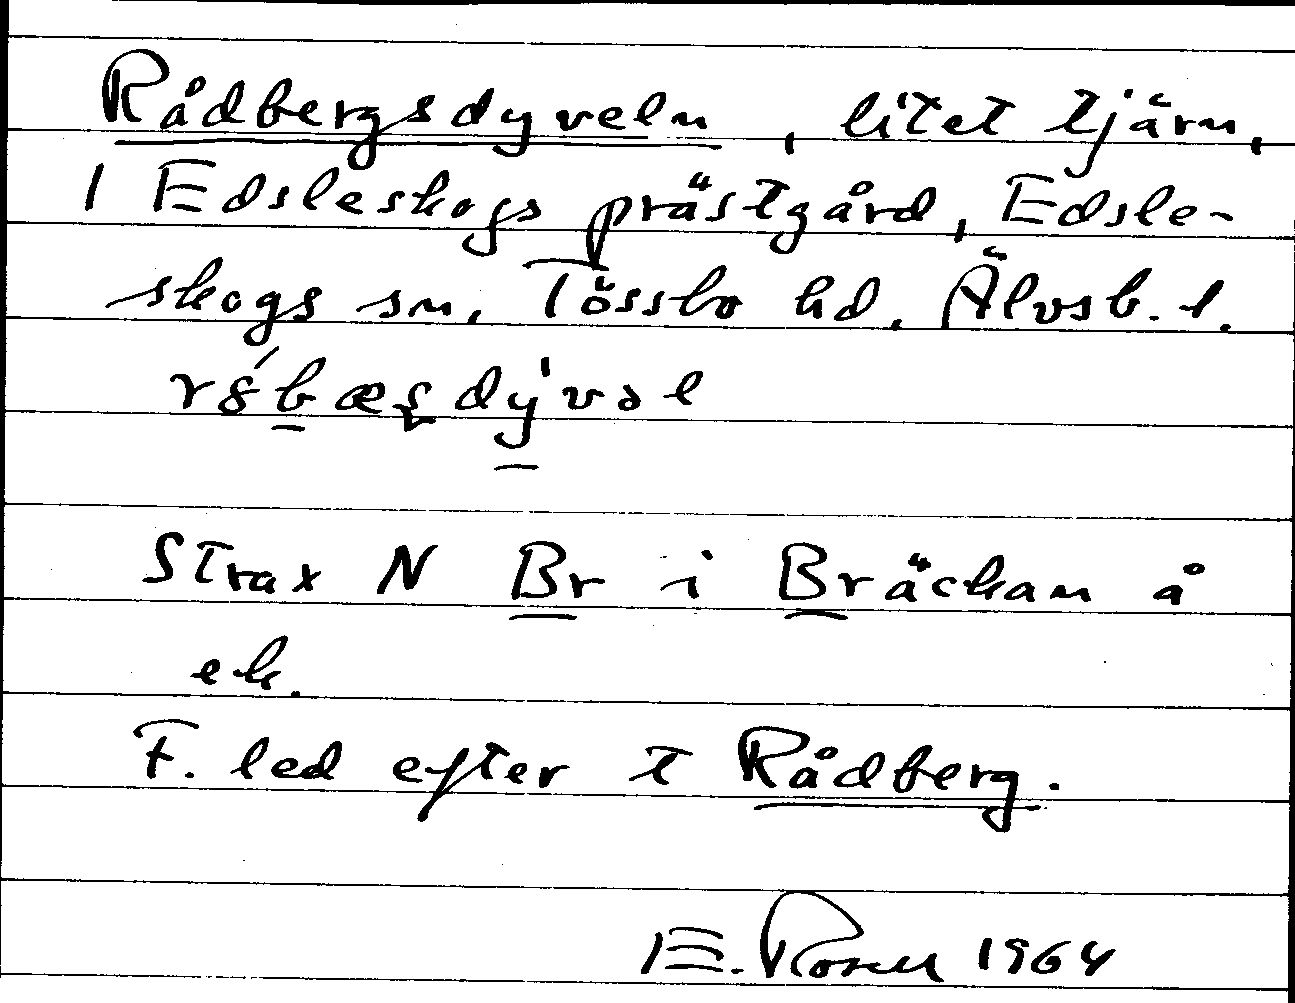 Rådbergsdyveln, litet tjärn,
1 Edsleskogs prästgård, Edsle-
skogs sn, Tössbo hd, Älvsb. l.
Strax N Br i Bräckan å
ek.
F. led efter t Rådberg.
E. Rosell 1964